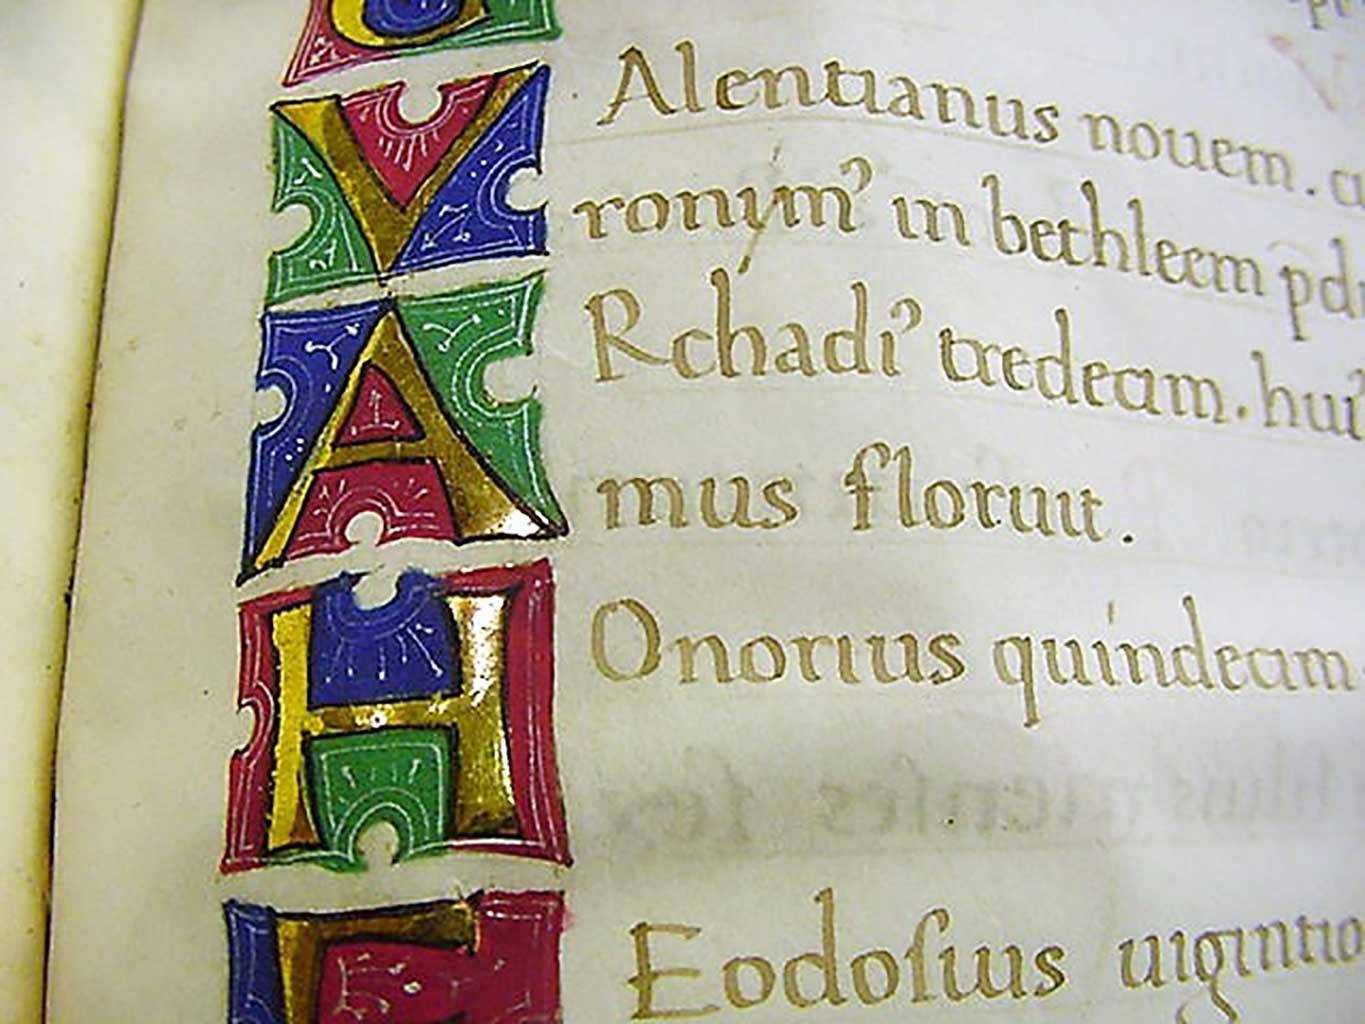 VAlentianus nouem.
ronym' in bethleem
ARchadi' tredecim. hui'
mus floruit.
HOnorius quindecim
Eodosius